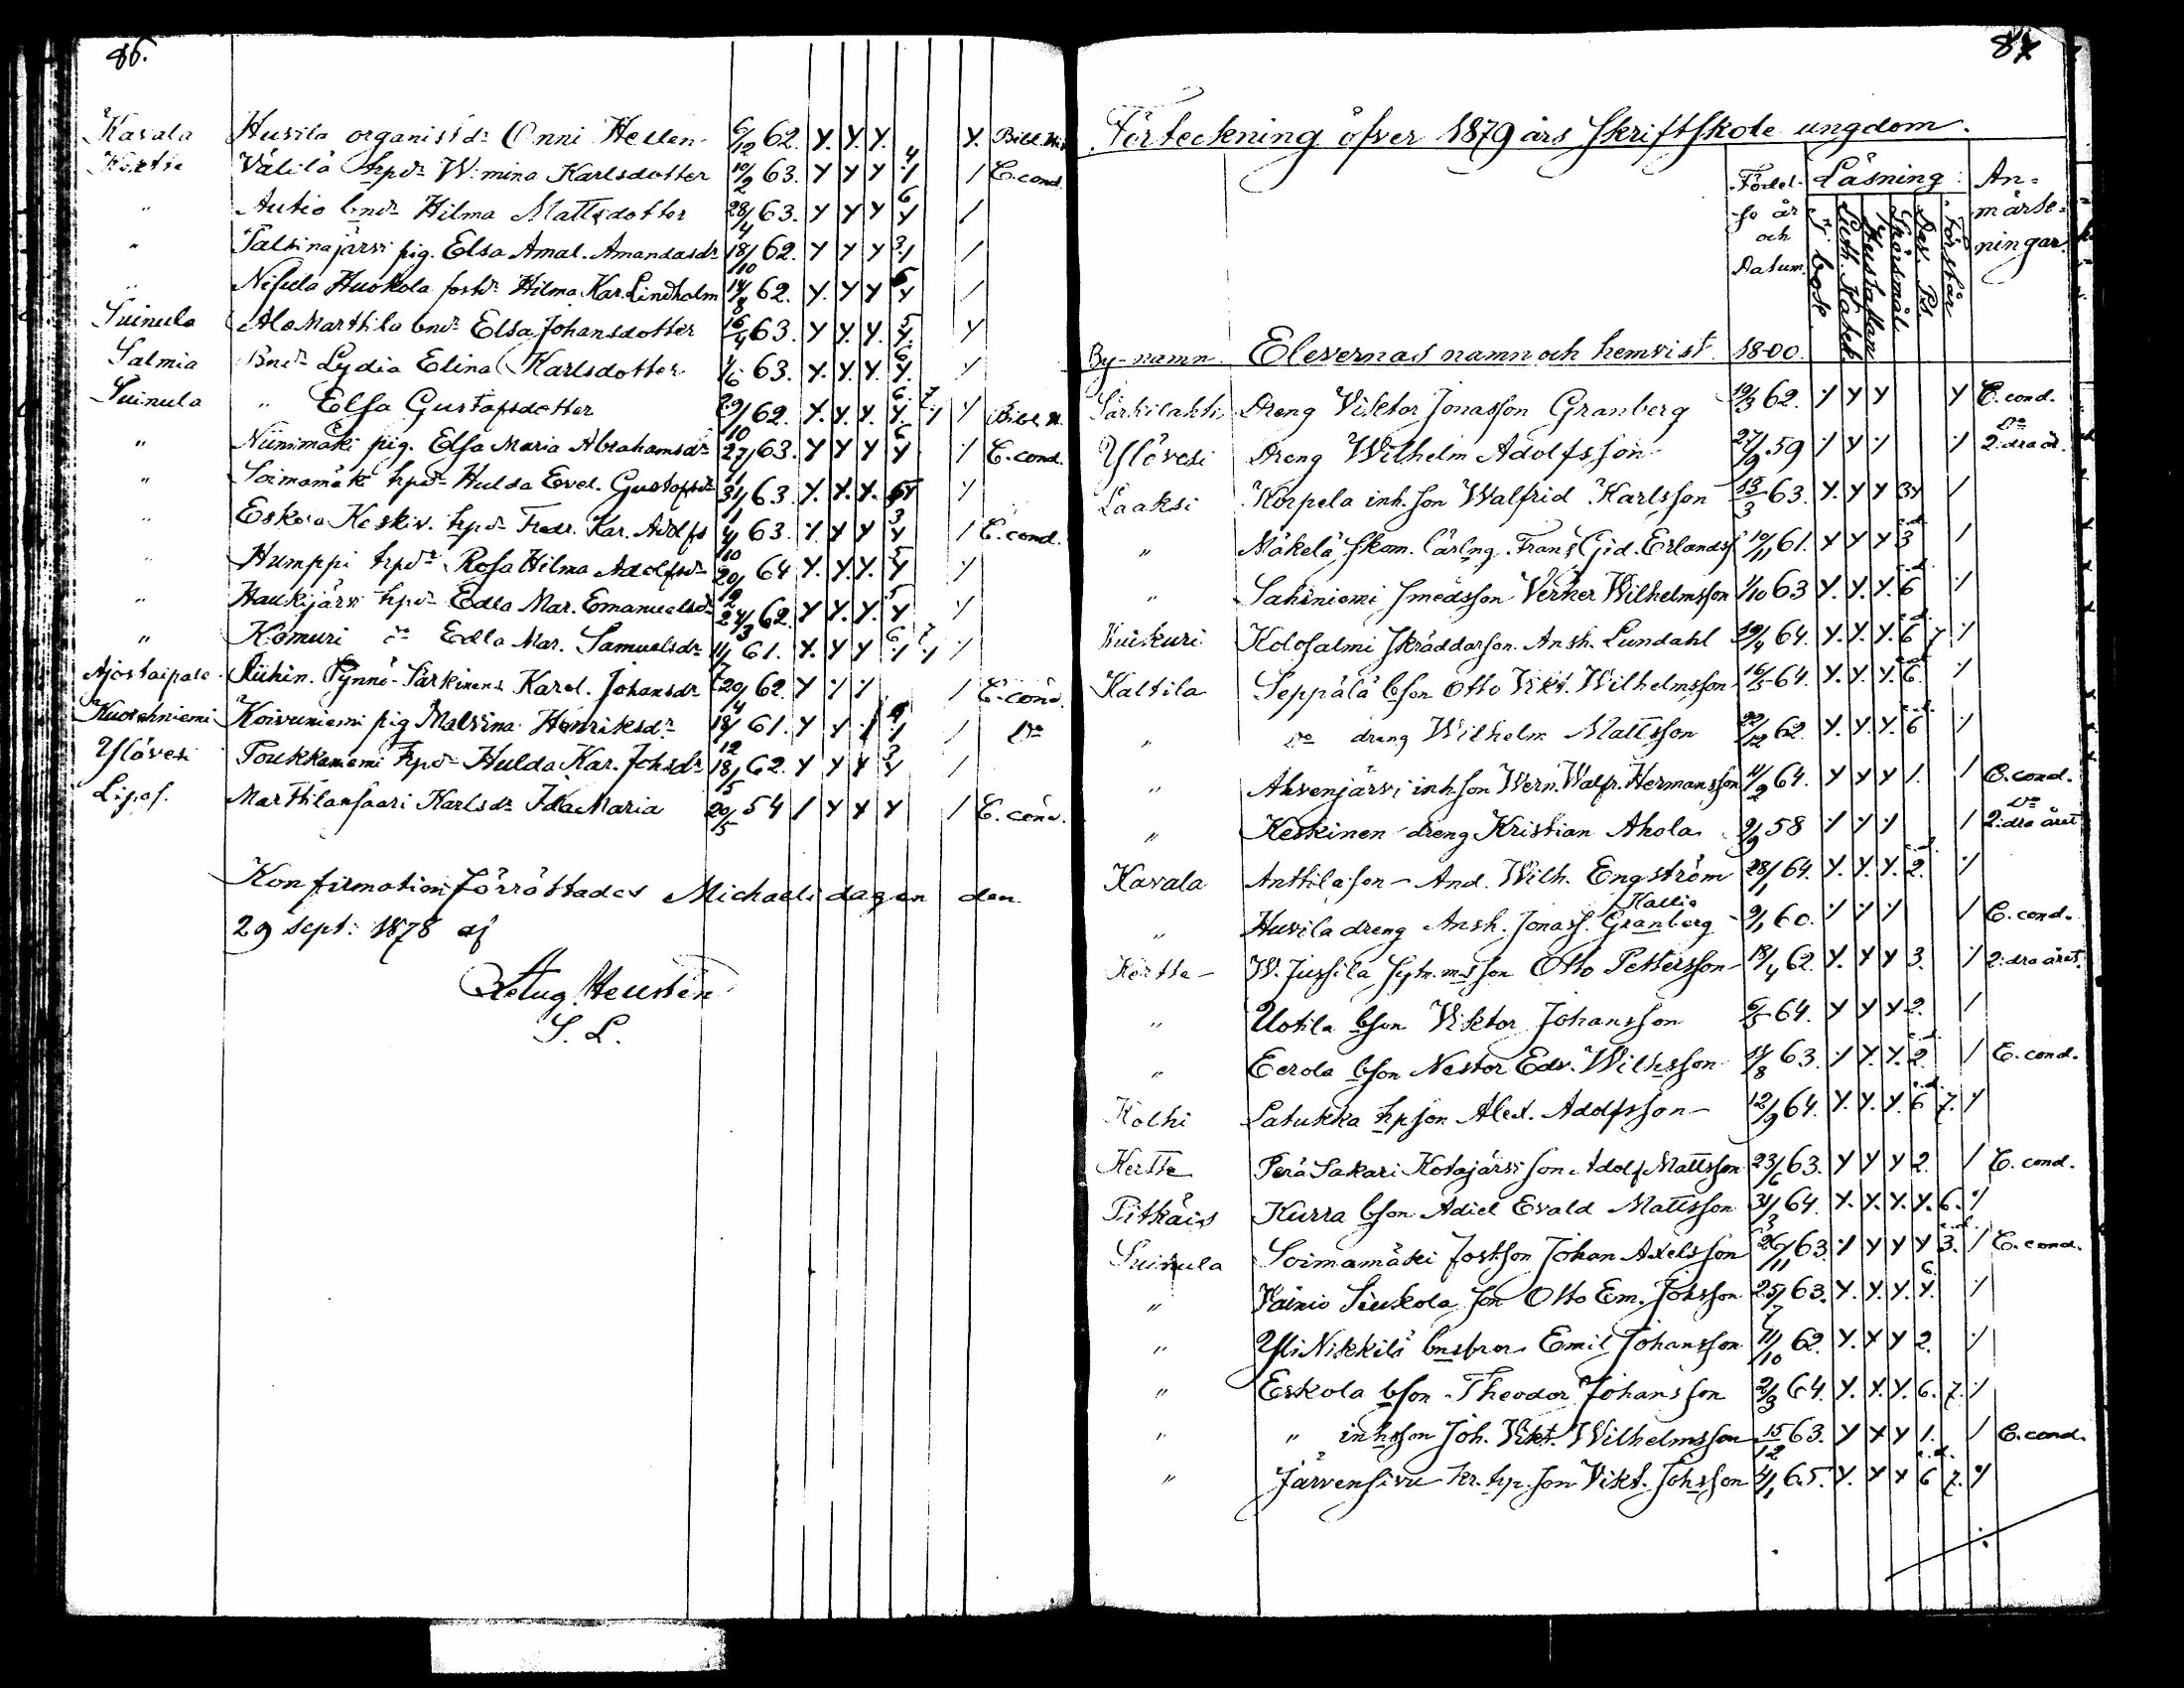 86.
Kavala Huvila organistdr Onni Hellen 6/12 62. Y. Y. Y. Y. Bibl. His
Kertte Välilä hpdr W:mina Karlsdotter 10/2 63. Y Y Y 4 / E. cond.
" Autio bndr Hilma Mattsdotter 28/4 63. Y Y Y 6 Y /
" Palsinajärvi pig. Elsa Amal. Amandasdr 18/10 62. Y Y Y 3 /
" Nisula Huokola fostdr Hilma Kar. Lindholm 14/8 62. Y. Y Y Y /
Suinula Ala Marttila bndr Elsa Johansdotter 16/4 63. Y Y. Y. 5 Y. Y
Salmia Bndr Lydia Elina Karlsdotter 1/6 63. Y. Y. Y. 6 Y. /
Suinula " Elsa Gustafsdotter 29/10 62. Y. Y. Y. 6 Y. 7 / Bibl. H.
" Niinimäki pig. Elsa Maria Abrahamsdr 27/1 63. Y Y Y 6 Y / E. cond.
" Soimamäki hpdr Hulda Evel. Gustafsdr 31/1 63. Y. Y. Y. 5 Y /
" Eskola Keskiv. hpdr Fredr. Kar. Adolfs 4/10 63. Y. Y Y 3 Y / E. cond.
" Humppi hpdr Rosa Hilma Adolfsdr 20/2 64 Y. Y. Y. 5 Y /
" Haukijärvi hpdr Edla Mar. Emanuelsdr 24/3 62. Y Y. Y. 5 Y /
" Komuri do Edla Mar. Samuelsdr 11/7 61. Y. Y Y 6 / 7 / /
Ajostaipale Riihin. Pynnö-Särkinens Karol. Johansdr 20/4 62. Y / / / E. cond.
Kuorehniemi Koivuniemi pig Malvina Henriksdr 18/12 61. Y Y / / / Do
Ylöves Poukkaniemi hpdr Hulda Kar. Johsdr 18/5 62. Y Y Y 3 Y /
Lipos. Marttilansaari Karlsdr Ida Maria 20/5 54 / Y Y Y / E. cond.
Konfirmation förrättades Michaeli dagen den
29 Sept: 1878 af
Aug. Heurlin
S. L.
87.
Förteckning öfver 1879 års Skriftskole ungdom.
By-namn. Elevernas namn och hemvist. Födel-se år och Datum. 18-00. Läsning: I bok Luth. Katek Hustaflan Spörsmål Dav. Ps. Förstår An-märkningar.
Särkilahti Dreng Viktor Jonasson Granberg 19/3 62. / Y Y Y E. cond.
Ylövesi Dreng Wilhelm Adolfsson 27/9 59 / Y / / Do 2:dra år.
Laaksi Korpela inh. son Walfrid Karlsson 13/3 63. Y. Y Y 3 Y /
" Mäkelä skom. lärlng. Frans Gid. Erlandss 10/11 61. Y Y Y 3 /
" Sahiniemi smedsson Verner Wilhelmsson 1/10 63 Y. Y. Y. 6 /
Kuikuri Kolosalmi skräddarson. Ansh. Lundahl 19/4 64. Y. Y. Y. 6 7 /
Kaltila Seppälä bson Otto Vikt. Wilhelmsson 16/5 64. Y. Y. Y. 6. /
" Do dreng Wilhelm Mattsson 22/12 62 Y. Y. Y. 6 /
" Ahvenjärvi inhson Wern. Walfr. Hermansson 4/2 64. Y Y Y 1. / E. cond.
" Keskinen dreng Kristian Ahola 2/9 58 / / / / Do 2:dra året
Kavala Anttila son And. Wilh. Engström 28/1 64. Y. Y. Y. 2. /
Kallio
" Huvila dreng Ansh. Jonass. Granberg 9/1 60. / / / / E. cond.
Kertte W. Jussila sytn.msson Otto Pettersson 18/4 62. Y. Y Y 3. / 2:dra året.
" Uotila bson Viktor Johansson 6/5 64. Y Y Y 2. /
" Eerola bson Nestor Edv. Wilhsson 11/8 63. / Y. Y. 2 / E. cond.
Kolhi Latukka hpson Alex. Adolfsson 12/9 64. Y. Y. Y. 6 7. Y
Kertte Perä Sakari Kotajärvi son. Adolf Mattsson 23/6 63. Y Y Y 2. / E. cond.
Pitkäis Kurra bson Adiel Evald Mattsson 31/3 64. Y. Y. Y. Y. 6. /
Suinula Soimamäki fostson Johan Axelsson 26/11 63. / Y Y Y 3. / E. cond.
" Vainio Siukola son Otto Em. Johsson 25/7 63. Y. Y. Y. 6 Y. /
" Yli Nikkilä bnsbror Emil Johansson 11/10 62. Y. Y Y 2. /
" Eskola bson Theodor Johansson 2/3 64. Y. Y. Y. 6. 7. /
" " inhsson Joh. Vikt. Wilhelmsson 15/12 63. Y Y Y 1. / E. cond.
" Järvensivu kr. hp. son Vikt. Johsson 4/1 65. Y. Y Y 6 7. /